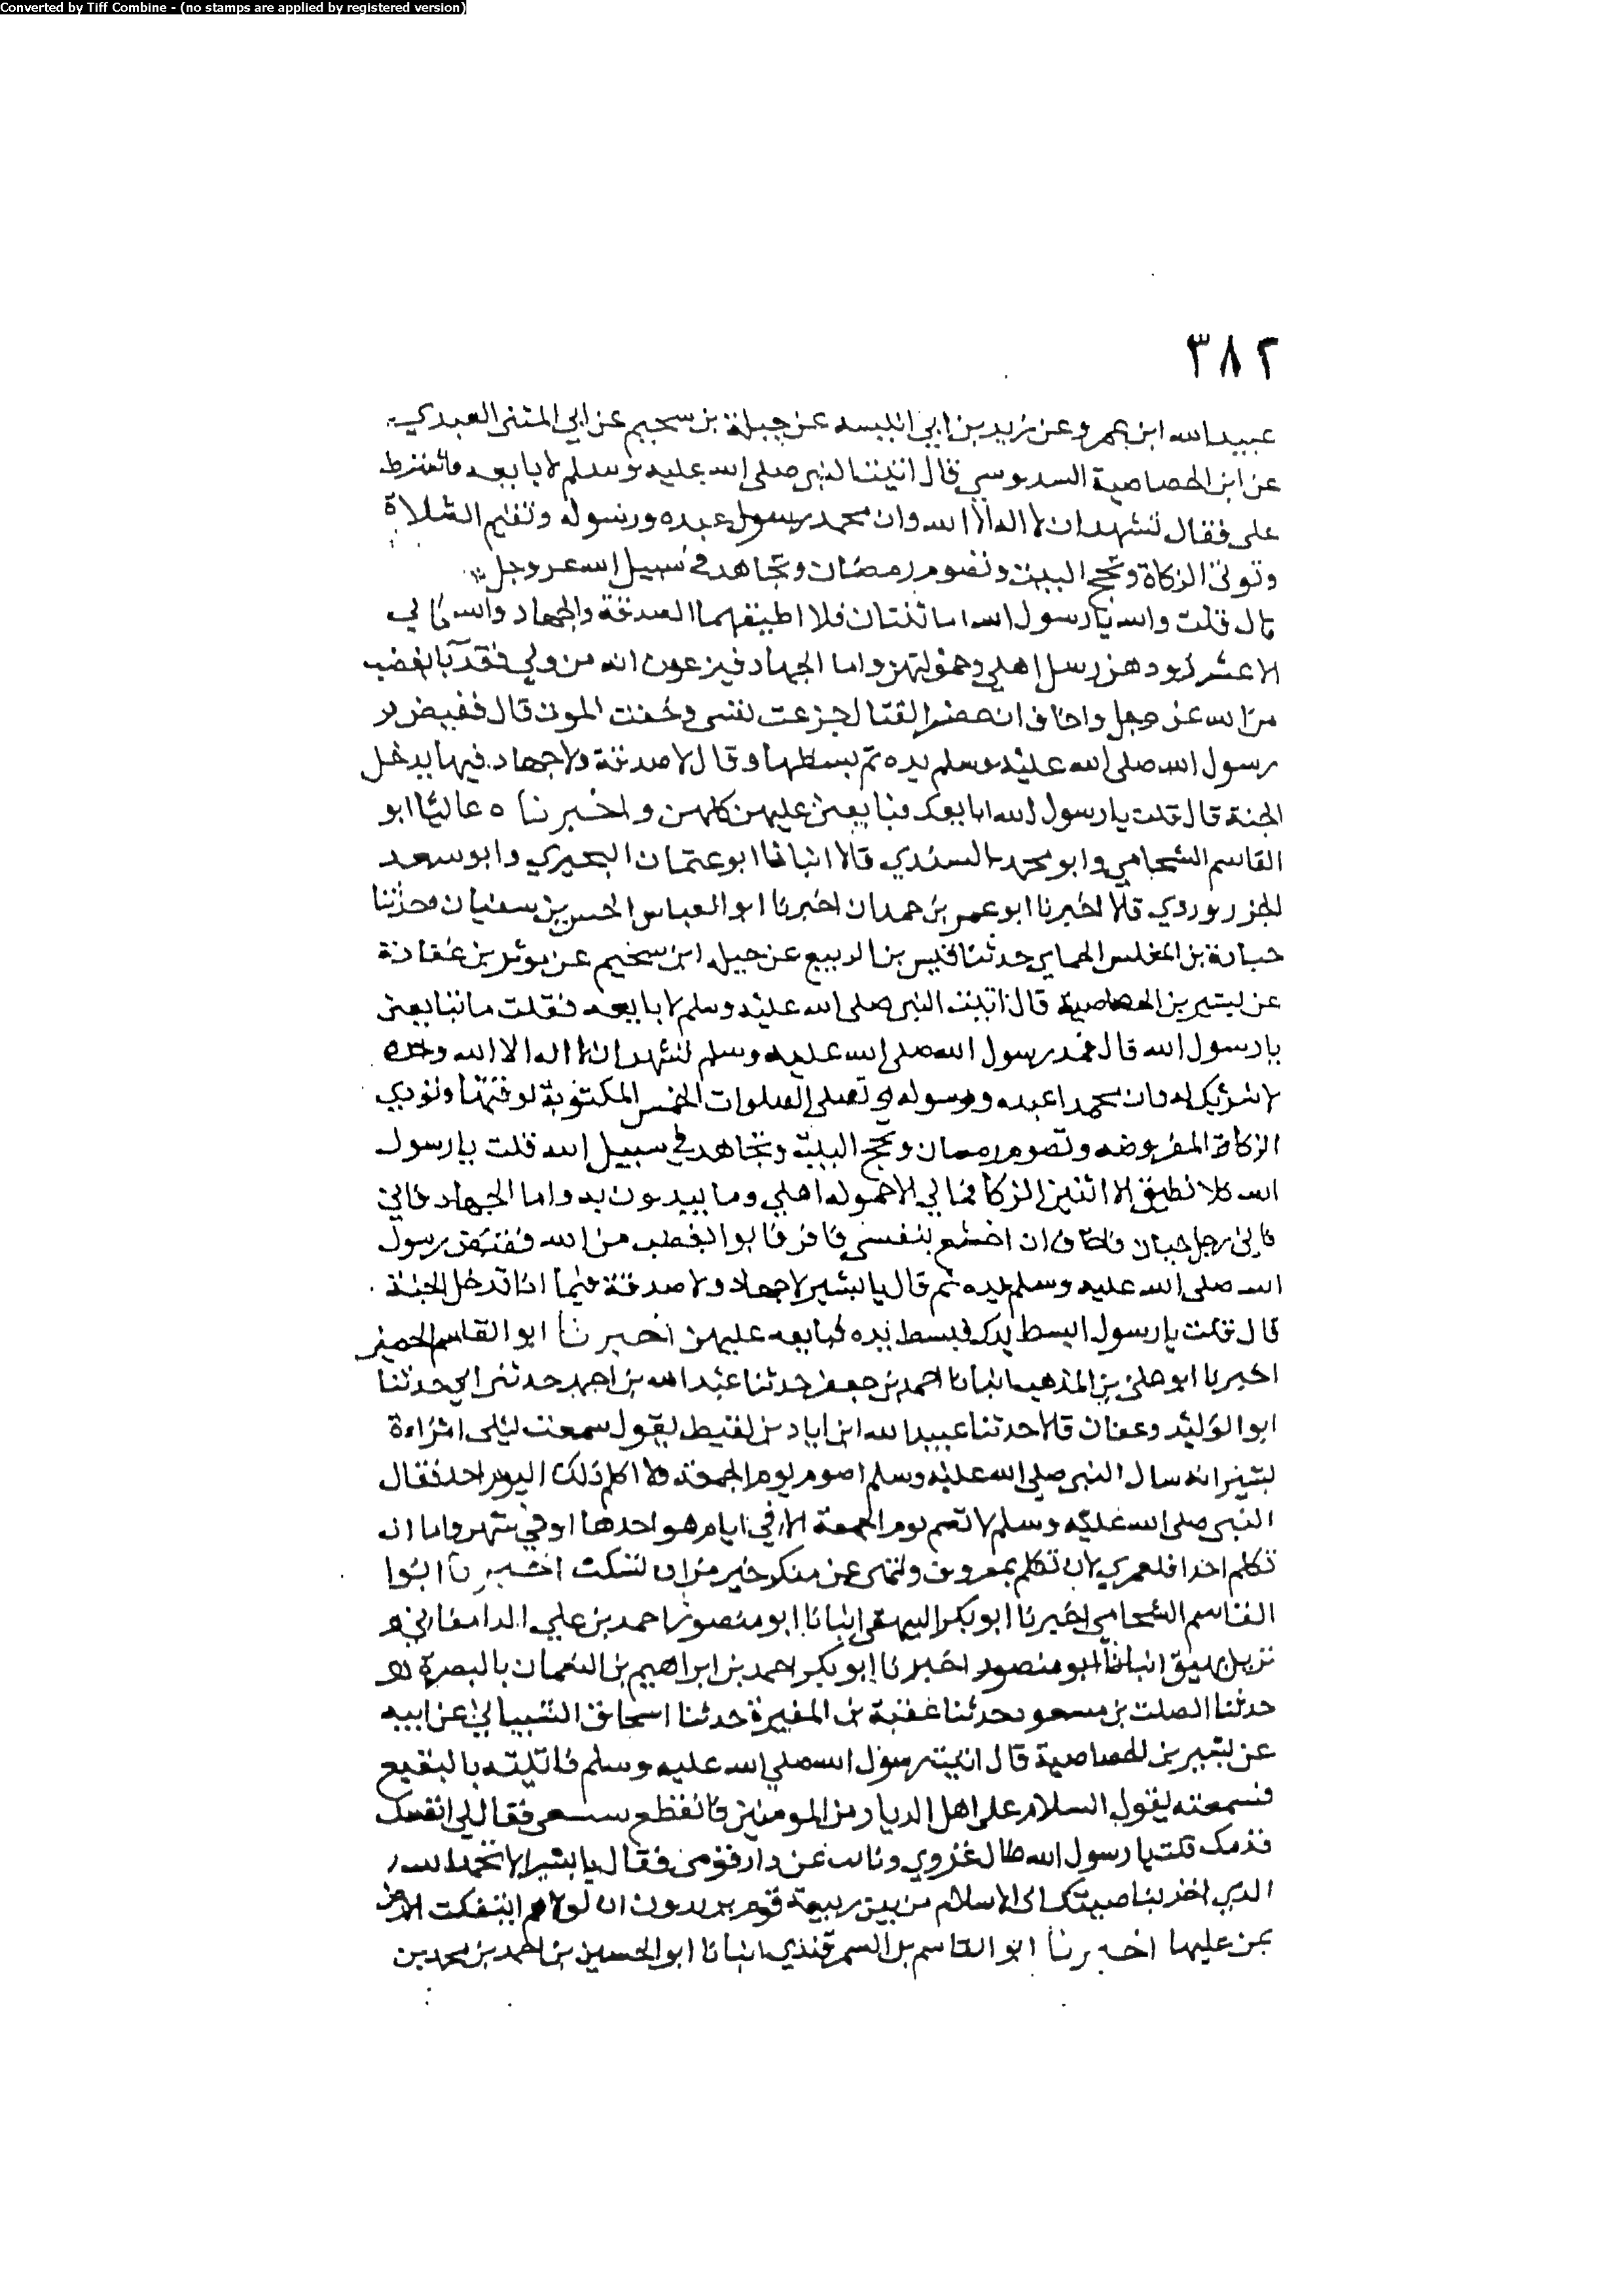 Converted by Tiff Combine - (no stamps are applied by registered version)
٣٨٢
عبيد الله ابن عمرو عن زيد بن ابي انيسه عن جبلة بن سحيم عن ابي المثنى العبدي
عن ابن الخصاصية السدوسي قال اتيت النبي صلى الله عليه وسلم لابايعه فاشترط
على فقال تشهد ان لا اله الا الله وان محمد رسول عبده ورسوله وتقيم الصلاة
وتوتي الزكاة وتحج البيت وتصوم رمضان وتجاهد في سبيل الله عز وجل
قال قلت والله يا رسول الله اما اثنتان فلا اطيقهما الصدقة والجهاد والله ما لي
الا عشر ذود هن رسل اهلي وحمولتهن واما الجهاد فيزعمون انه من ولي فقد با بغضب
من الله عز وجل واخاف ان حضر القتال جزعت نفسي وخفت الموت قال فقبض
رسول الله صلى الله عليه وسلم يده ثم بسطها وقال لا صدقة ولا جهاد فبما يدخل
الجنة قال قلت يا رسول الله ابايعك فبايعني عليهن كلهن واخبرناه عاليا ابو
القاسم الشحامي وابو محمد السندي قالا انبانا ابو عثمان البحيري وابو سعد
الجنزرودي قالا اخبرنا ابو عمرو بن حمدان اخبرنا ابو العباس الحسن بن سفيان حدثنا
جبارة بن المغلس الحماني حدثنا قيس بن الربيع عن جبلة ابن سحيم عن موثر بن عفازة
عن بشير بن الخصاصية قال اتيت النبي صلى الله عليه وسلم لابايعه فقلت ما تبايعني
يا رسول الله قال فمد رسول الله صلى الله عليه وسلم تشهد ان لا اله الا الله وحده
لا شريك له وان محمدا عبده ورسوله وتصلى الصلوات الخمس المكتوبة لوقتها وتودي
الزكاة المفروضه وتصوم رمضان وتحج البيت وتجاهد في سبيل الله قلت يا رسول
الله كلا نطيق الا اثنين الزكاة فمالي الا حموله اهلي وما يبدون به واما الجهاد فاني
فاني رجل جبان فاخاف ان اخشع بنفسي فافر فابوا بغضب من الله فقبض رسول
الله صلى الله عليه وسلم يده ثم قال يا بشير لا جهاد ولا صدقة فبما اذا تدخل الجنة
قال قلت يا رسول ابسط يدك فبسط يده فبايعه عليهن اخبرنا ابو القاسم الحصين
اخبرنا ابو علي بن المذهب انبانا احمد بن جعفر حدثنا عبد الله بن احمد حدثني ابي حدثنا
ابو الوليد وعفان قالا حدثنا عبيد الله ابن اياد بن لقيط يقول سمعت ليلى امراة
بشير انه سال النبي صلى الله عليه وسلم اصوم يوم الجمعة ولا اكلم ذلك اليوم احد فقال
النبي صلى الله عليه وسلم لا تصم يوم الجمعة الا في ايام هو احدها او في شهر واما ان
تكلم احدا فلعمري لان تكلم بمعروف وتنهى عن منكر خير من ان تسكت اخبرنا ابوا
القاسم الشحامي اخبرنا ابو بكر البيهقي انبانا ابو منصور احمد بن علي الدامغاني
نزيل بيهق انبانا ابو منصور اخبرنا ابو بكر احمد بن ابراهيم بن النعمان بالبصرة
حدثنا الصلت بن مسعود حدثنا عقبة بن المغيرة حدثنا اسحاق الشيباني عن ابيه
عن بشير بن الخصاصية قال اتيت رسول الله صلى الله عليه وسلم فاتيته بالبقيع
فسمعته يقول السلام على اهل الديار من المومنين فانقطع سسعي فقال لي انعش
قدمك قلت يا رسول الله طال غزوي ونات عن دار قومي فقال يا بشير الا تحمد الله
الذي اخذ بناصيتك الى الاسلام من بين ربيعة قوم يرون ان لولاهم ائتفكت الارض
بمن عليها اخبرنا ابو القاسم بن السمرقندي انبانا ابو الحسين بن احمد بن محمد بن